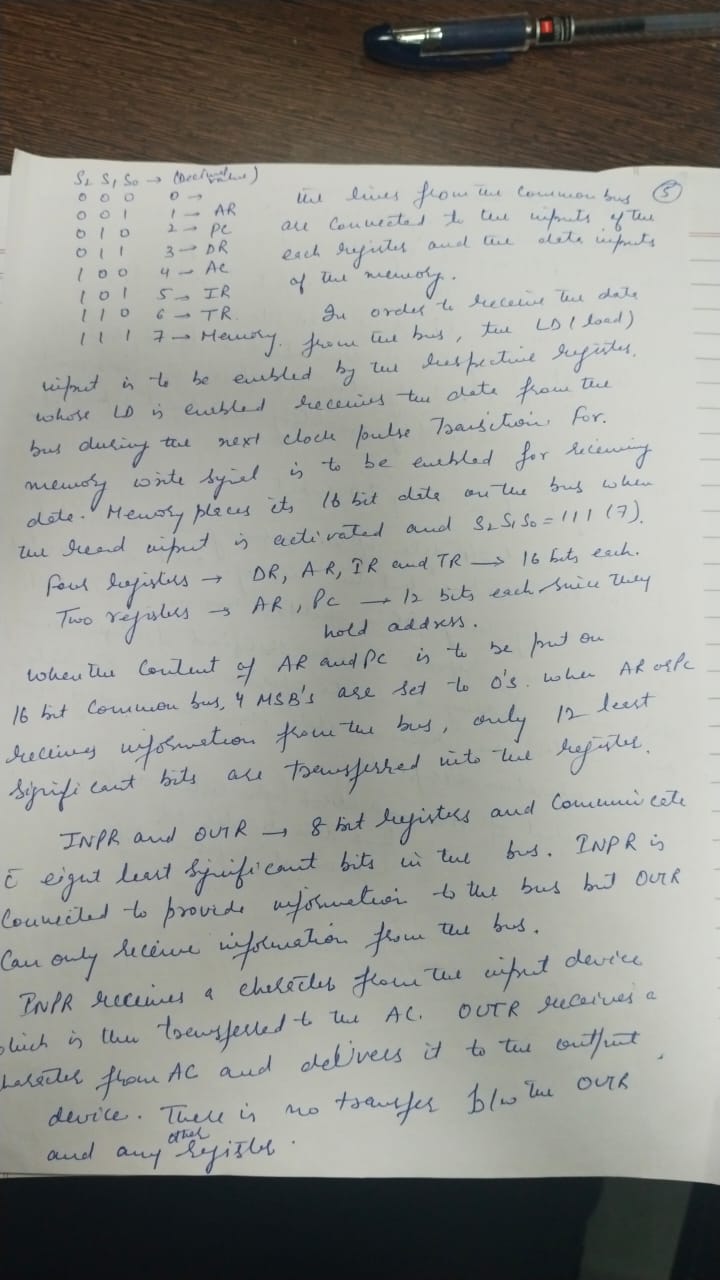 S2 S1 S0 → (Decimal value)
0 0 0 0 →
0 0 1 1 → AR
0 1 0 2 → PC
0 1 1 3 → DR
1 0 0 4 → AC
1 0 1 5 → IR
1 1 0 6 → TR
1 1 1 7 → Memory.
5
The lines from the common bus
are connected to the inputs of the
each register and the data inputs
of the memory.
In order to receive the data
from the bus, the LD (load)
input is to be enabled by the respective register.
whose LD is enabled receives the data from the
bus during the next clock pulse Transition. For.
memory write signal is to be enabled for receiving
data. Memory places its 16 bit data on the bus when
the read input is activated and S2S1S0 = 111 (7).
Four registers → DR, AR, IR and TR → 16 bits each.
Two registers → AR, PC → 12 bits each since they
hold address.
when the content of AR and PC is to be put on
16 bit common bus, 4 MSB's are set to 0's. when AR or PC
receives information from the bus, only 12 least
significant bits are transferred into the register.
INPR and OUTR → 8 bit registers and communicate
c̄ eight least significant bits in the bus. INPR is
connected to provide information to the bus but OUTR
can only receive information from the bus.
INPR receives a character from the input device
which is then transferred to the AC. OUTR receives a
character from AC and delivers it to the output
device. There is no transfer b/w the OUTR
and any other register.